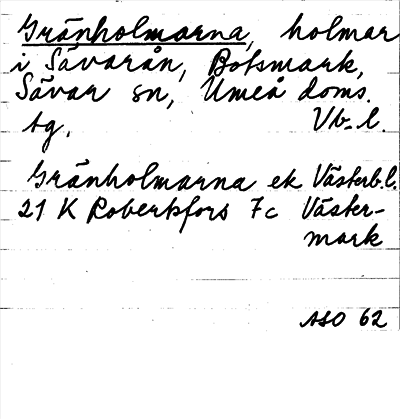 Gränholmarna, holmar
i Sävarån, Botsmark,
Sävar sn, Umeå doms.
tg. Vb. l.
Gränholmarna ek Västerb.l.
21 K Robertsfors 7c Väster-
mark
ASO 62